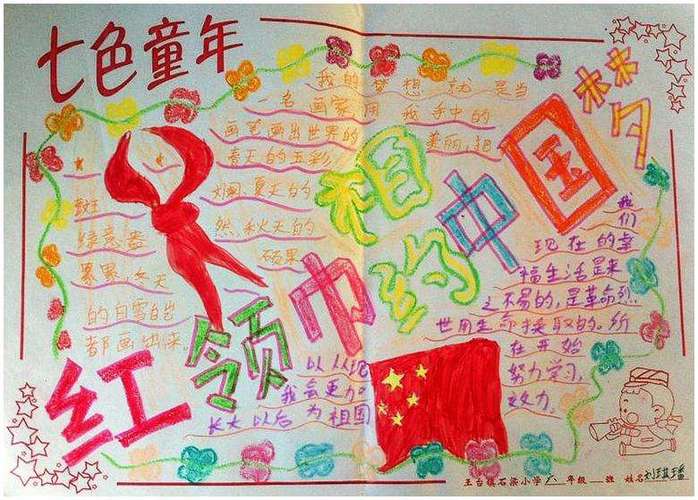 七色童年
我的梦想就是当
一名画家用我手中的
画笔画出世界的美丽,把
春天的五彩
斑斓,夏天的
绿意盎然,秋天的
硕果
累累,冬天
的白雪皑皑
都画出来。
红领巾相约中国梦
我们
现在的幸
福生活是来
之不易的,是革命烈
世用生命换取的。所
以从现在开始
我会更
努力学习,
长大以后为祖国
效力。
王台镇石梁小学六年级 班 姓名